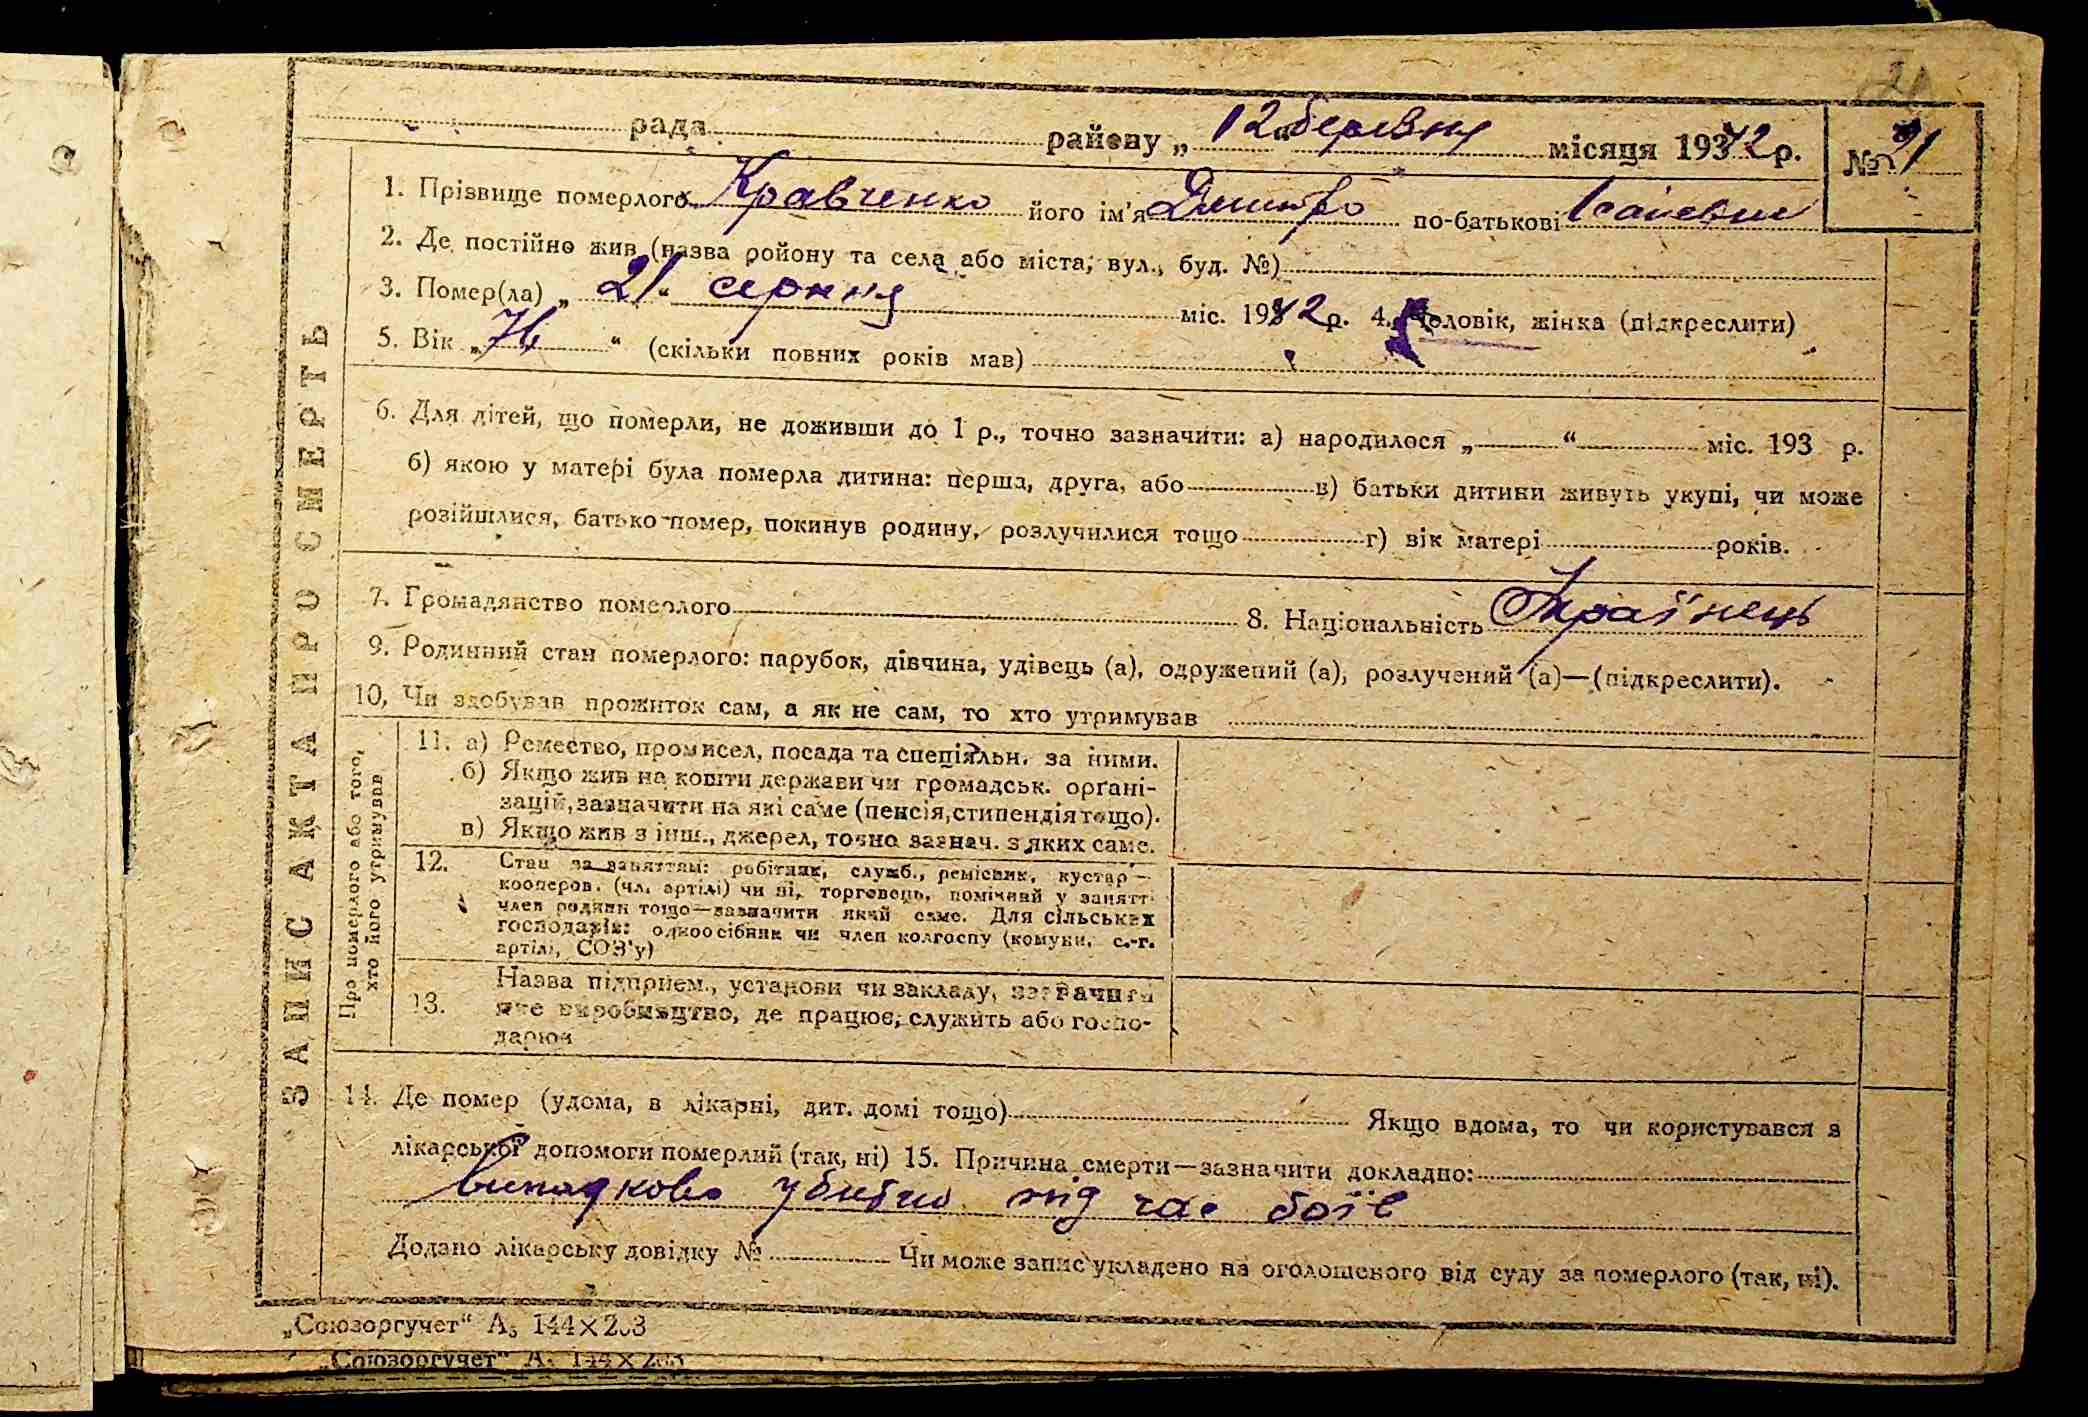 рада районy „ 12 “ березня місяця 1942 р. № 21
1. Прізвище померлого Кравченко його ім'я Дмитро по-батькові Ісаієвич
2. Де постійно жив (назва ройону та села або міста, вул., буд. №)
3. Помер(ла) „ 21 “ серпня міс. 1942 р. 4. Чоловік, жінка (підкреслити)
5. Вік „ “ (скільки повних років мав)
6. Для дітей, що померли, не доживши до 1 р., точно зазначити: а) народилося „ “ міс. 193 р.
б) якою у матері була померла дитина: перша, друга, або в) батьки дитини живуть укупі, чи може
розійшлися, батько помер, покинув родину, розлучилися тощо г) вік матері років.
7. Громадянство померлого 8. Національність Українець
9. Родинний стан померлого: парубок, дівчина, удівець (а), одружений (а), розлучений (а)—(підкреслити).
10, Чи здобував прожиток сам, а як не сам, то хто утримував
ЗАПИС АКТА ПРО СМЕРТЬ
Про померлого або того,
хто його утримував
11. а) Ремество, промисел, посада та спеціяльн. за ними.
б) Якщо жив на кошти держави чи громадськ. орґані-
зацій, зазначити на які саме (пенсія, стипендія тощо).
в) Якщо жив з інш., джерел, точно зазнач. з яких саме.
12. Стан за заняттям: робітник, служб., ремісник, кустар—
кооперов. (чл. артілі) чи ні, торговець, помічний у занятт.
член родини тощо—зазначити який саме. Для сільських
господарів: одноосібник чи член колгоспу (комуни, с.-г.
артілі, СОЗ'у)
13. Назва підприєм., установи чи закладу, зазначити
яке виробництво, де працює, служить або госпо-
дарює
14. Де помер (удома, в лікарні, дит. домі тощо) Якщо вдома, то чи користувався з
лікарської допомоги померлий (так, ні) 15. Причина смерти—зазначити докладно:
випадково убито під час боїв
Додано лікарську довідку № Чи може запис укладено на оголошеного від суду за померлого (так, ні).
„Союзоргучет“ А5 144×203
„Союзоргучет“ А5 144×203